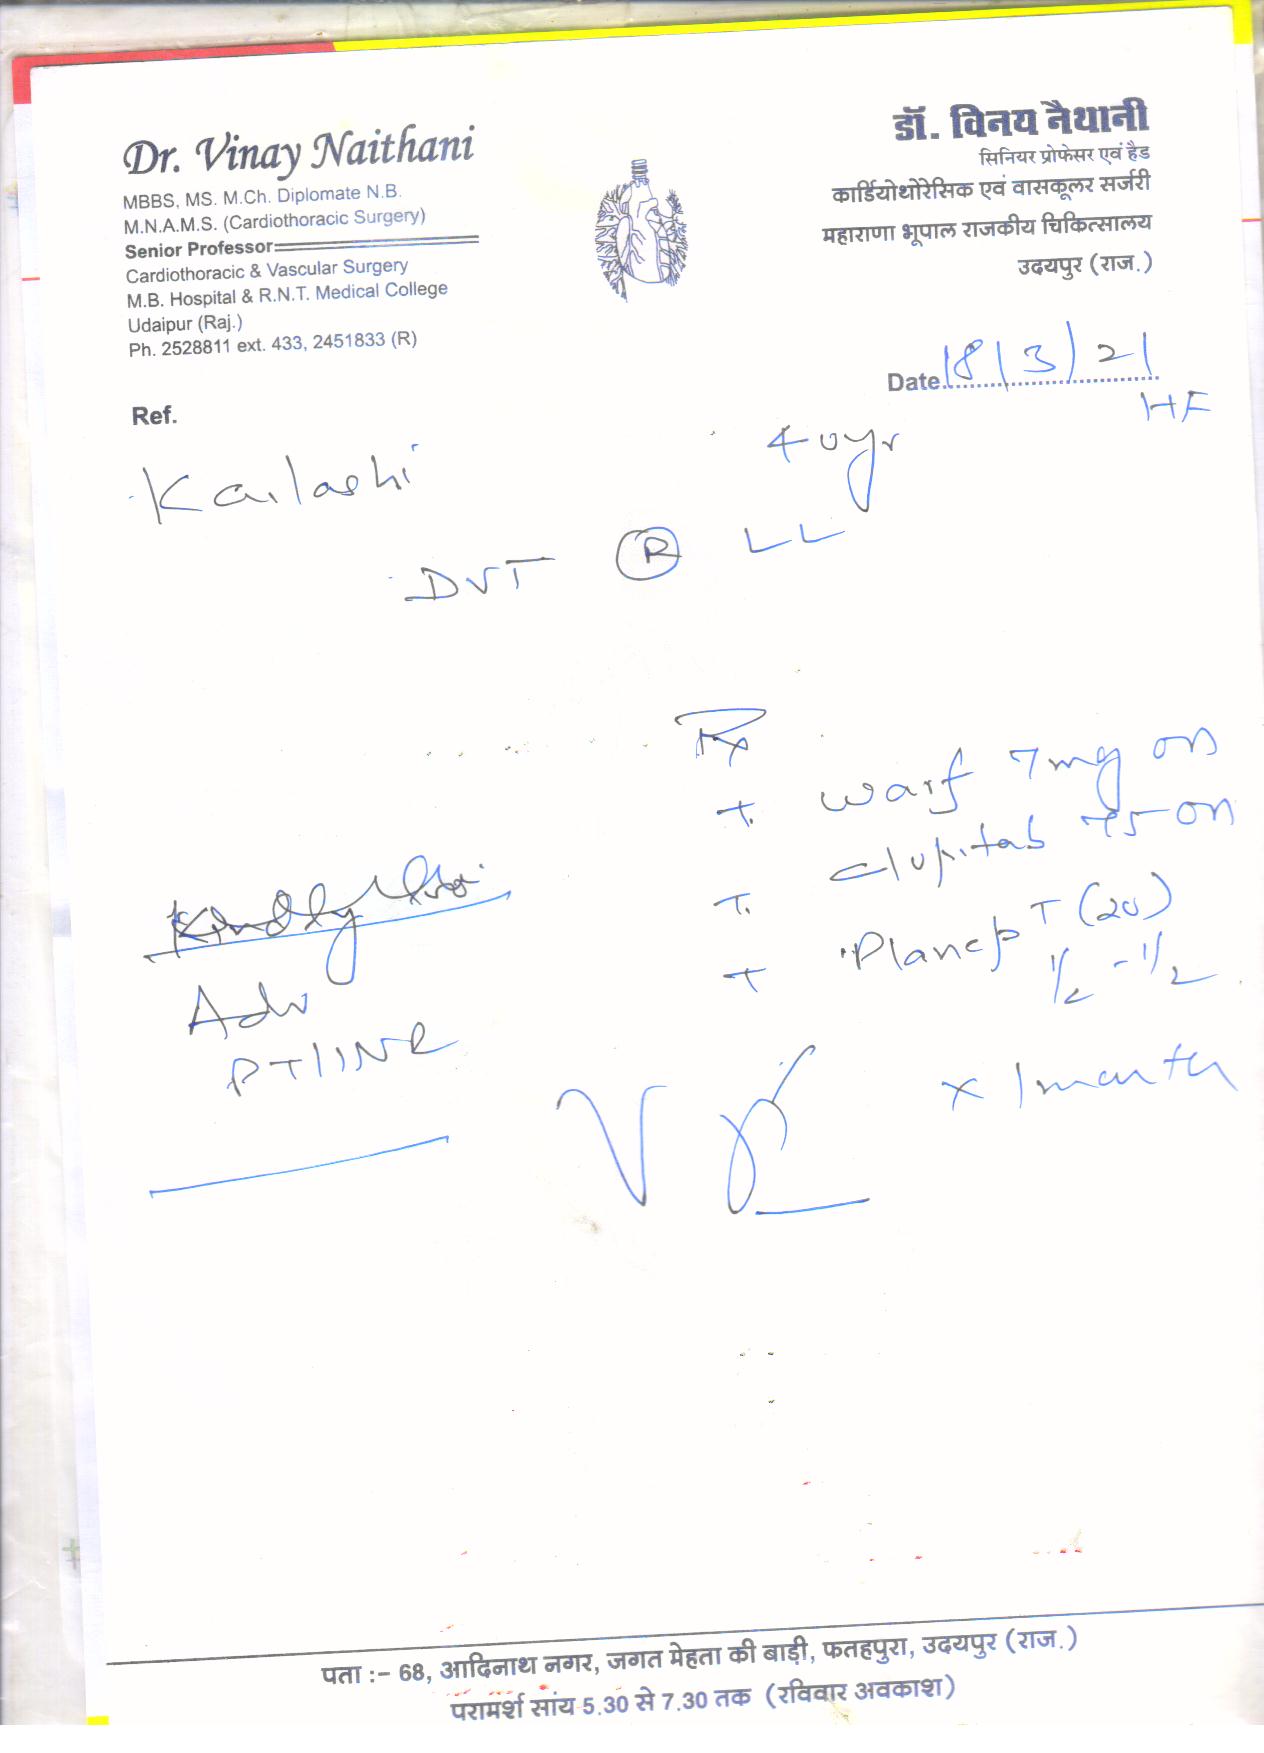 Dr. Vinay Naithani
MBBS, MS. M.Ch. Diplomate N.B.
M.N.A.M.S. (Cardiothoracic Surgery)
Senior Professor
Cardiothoracic & Vascular Surgery
M.B. Hospital & R.N.T. Medical College
Udaipur (Raj.)
Ph. 2528811 ext. 433, 2451833 (R)
डॉ. विनय नैथानी
सिनियर प्रोफेसर एवं हैड
कार्डियोथोरेसिक एवं वासकूलर सर्जरी
महाराणा भूपाल राजकीय चिकित्सालय
उदयपुर (राज.)
Date 18/3/21
HF
Ref.
Kailashi 40yr
DVT R LL
Rx
T. warf 7mg on
T. clopitab 75 on
T Plancp T (20)
1/2 - 1/2
x 1 month
Kindly
Adv
PT/INR
पता :- 68, आदिनाथ नगर, जगत मेहता की बाड़ी, फतहपुरा, उदयपुर (राज.)
परामर्श सांय 5.30 से 7.30 तक (रविवार अवकाश)